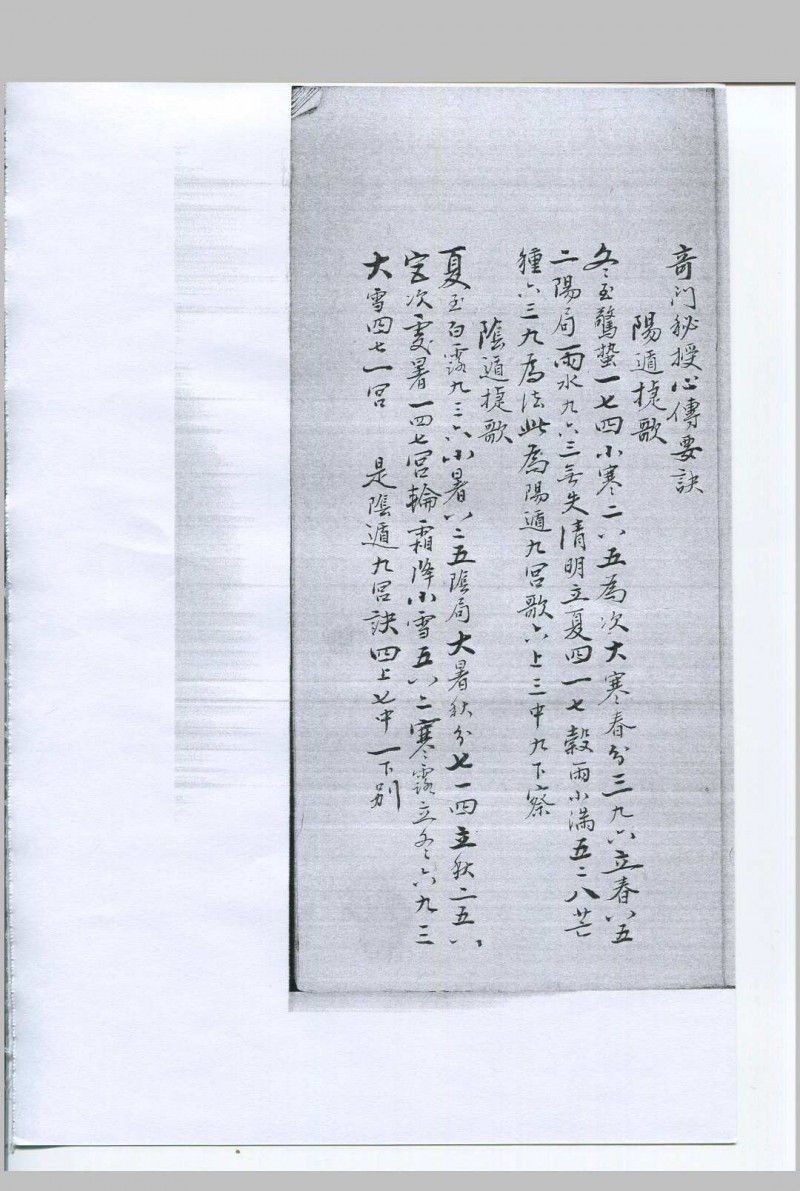 奇门秘授心傳要訣
陽遁捷歌
冬至驚蛰一七四小寒二八五為次大寒春分三九六立春八五
二陽局雨水九六三無失清明立夏四一七穀雨小满五二八芒
種六三九為法此為陽遁九宫歌六上三中九下察
陰遁捷歌
夏至白露九三六小暑八二五陰局大暑秋分七一四立秋二五八
宫次處暑一四七宫輪霜降小雪五八二寒露立冬六九三
大雪四七一宫 是陰遁九宫訣四上七中一下别